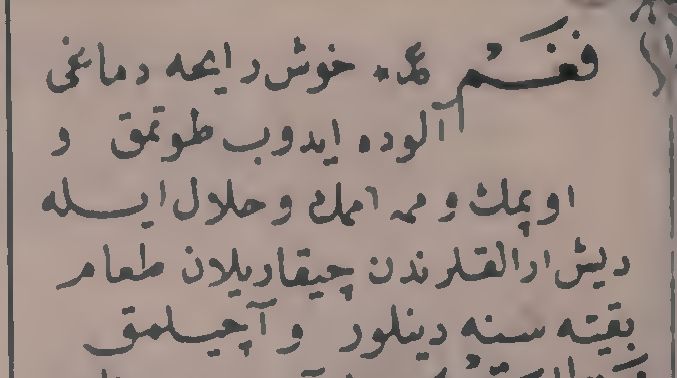 فَغْم خوش رایحه دماغی
آلوده ایدوب طوتمق و
اوپمك و ممه اممك و حلال ایسله
دیش ارالقلرندن چیقاریلان طعام
بقیه سنه دینلور و آچیلمق